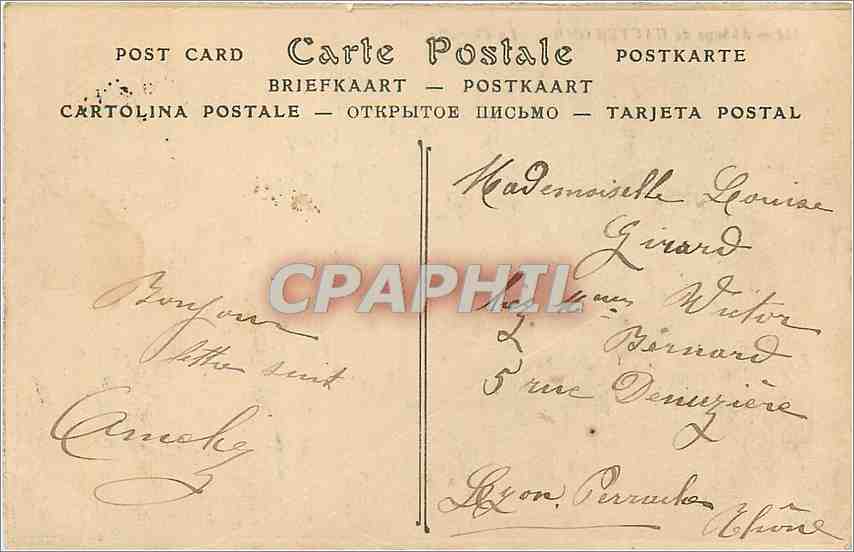 POST CARD Carte Postale POSTKARTE
BRIEFKAART — POSTKAART
CARTOLINA POSTALE — ОТКРЫТОЕ ПИСЬМО — TARJETA POSTAL
Bonjour
lettre suit
Mademoiselle Louise
Girard
chez Victor
Bernard
5 rue Denuzière
Lyon. Perrache
Rhône
CPAPHIL